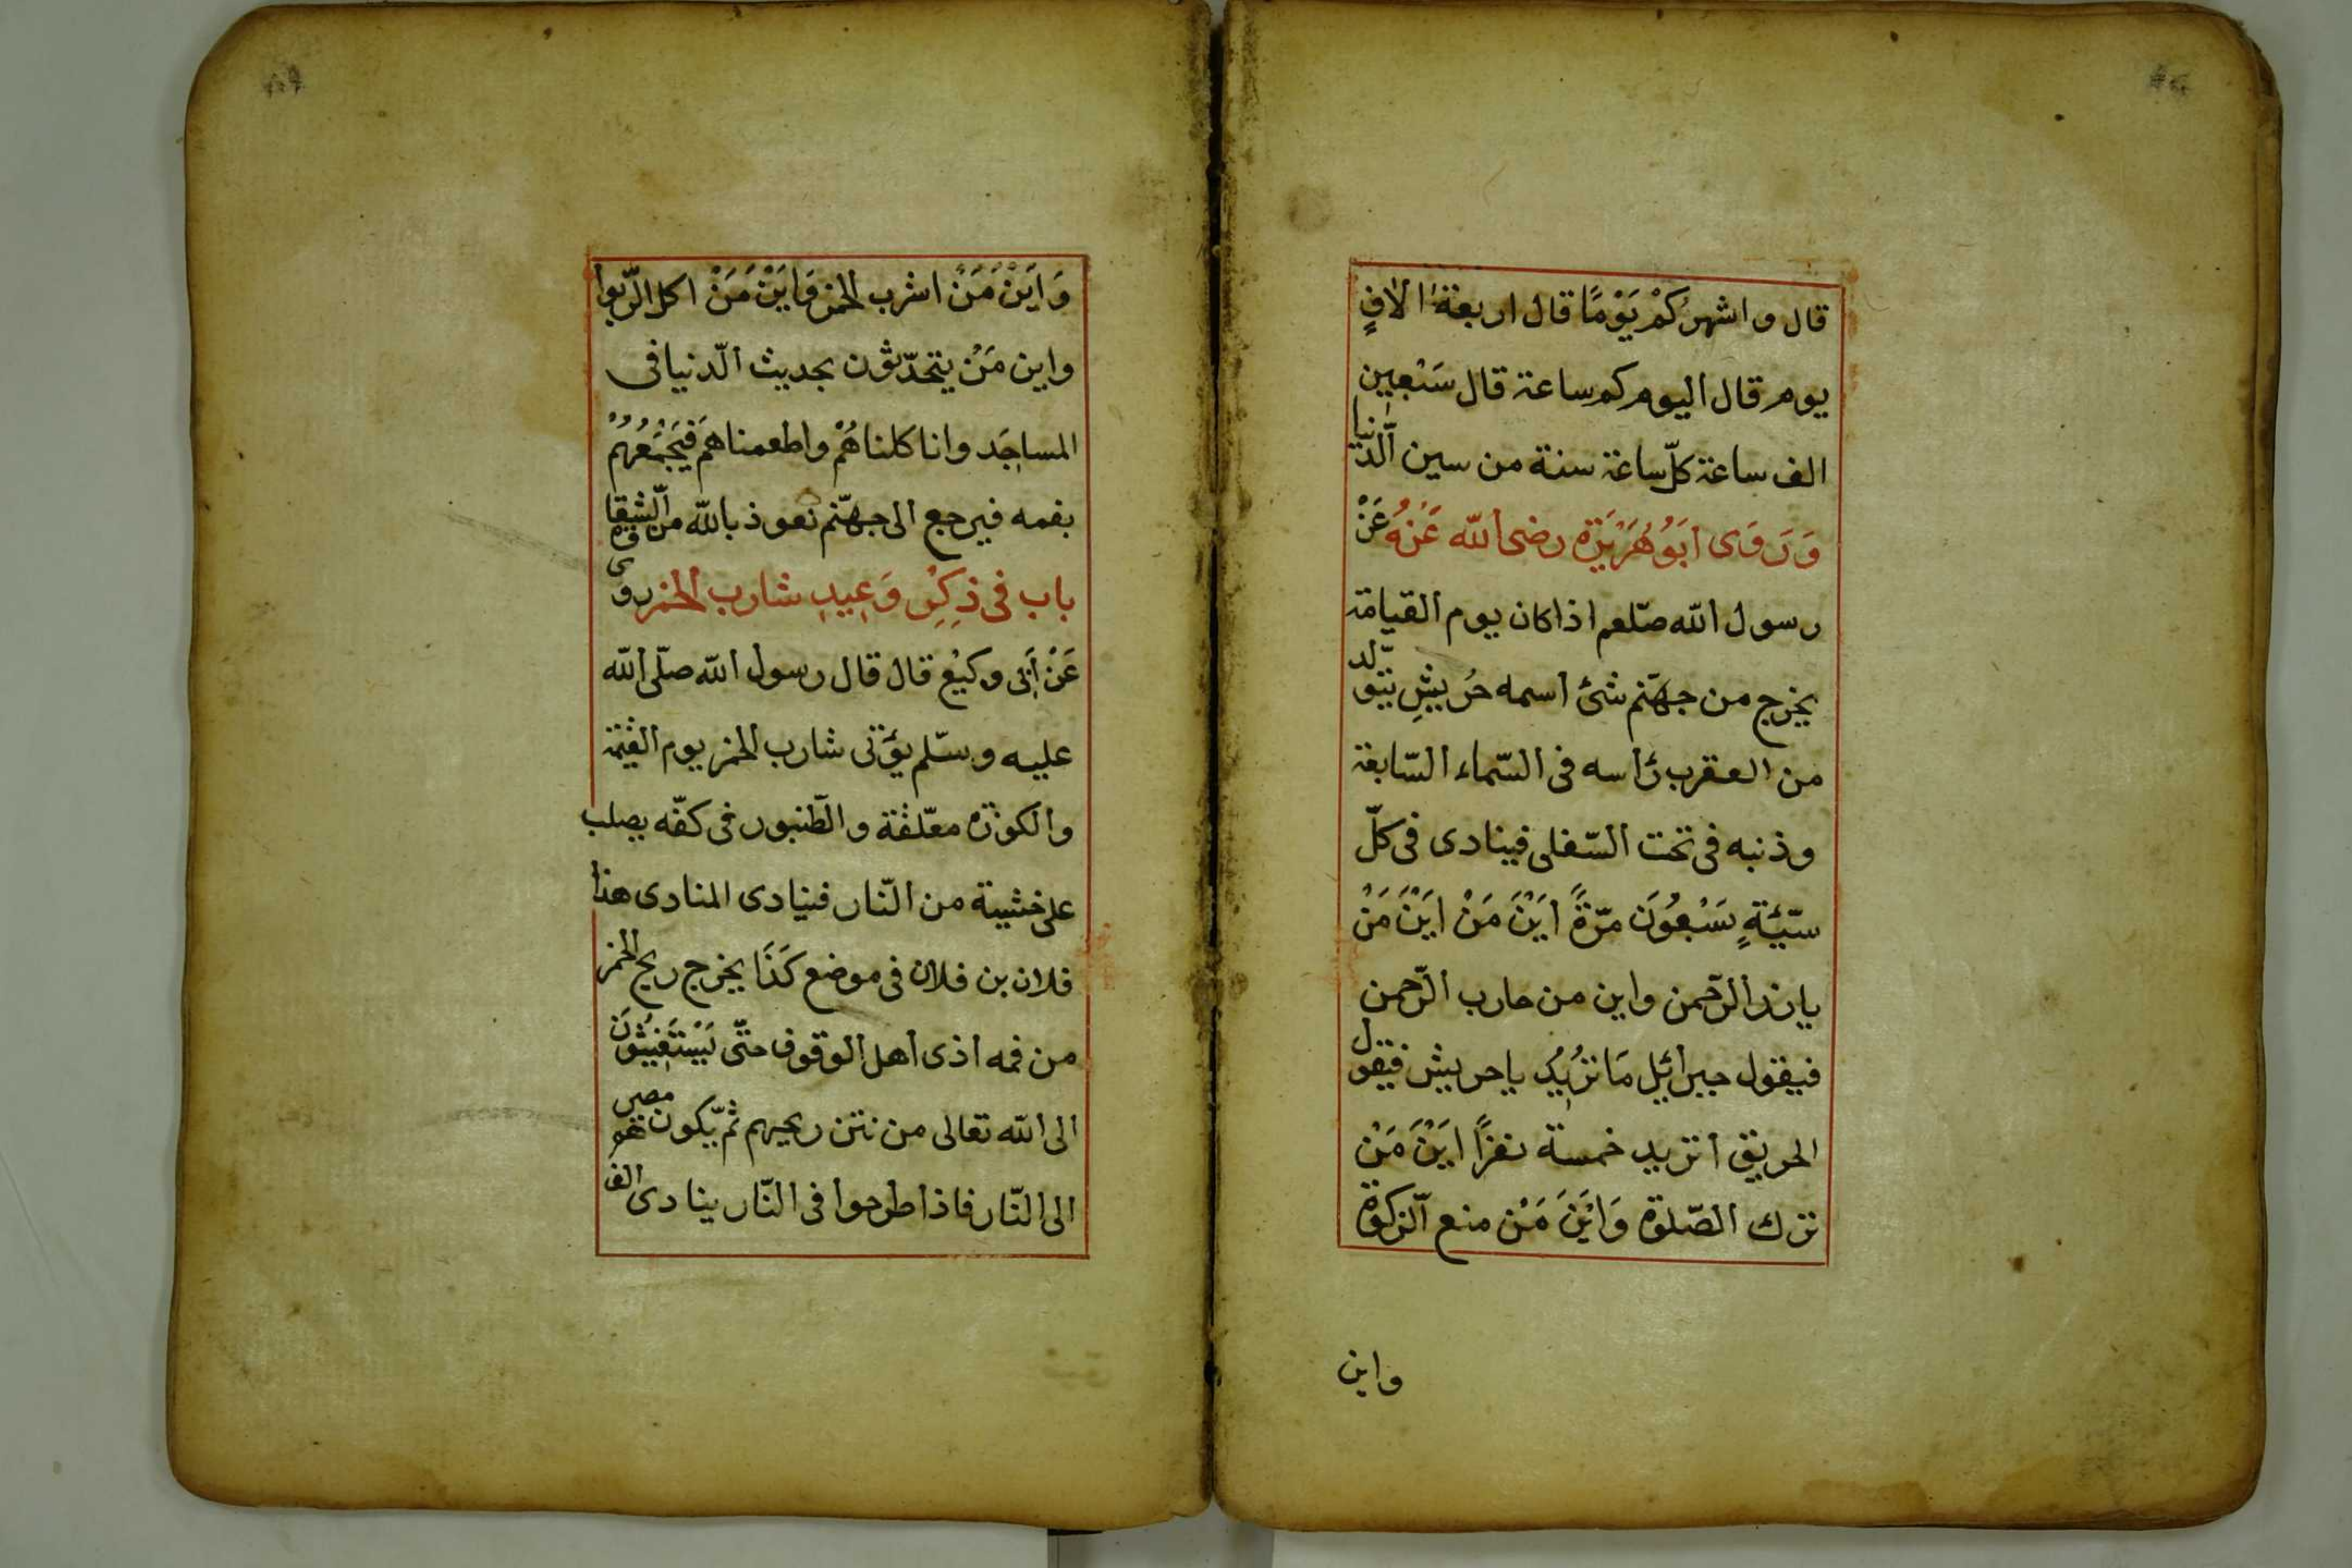 قال واشهر كَمْ يَوْمًا قال اربعة الافٍ
يوم قال اليوم كم ساعة قال سَبْعِين
الف ساعة كلّ ساعة سنة من سين الّدنيا
وَرَوَى اَبُو هُرَيْرَة رضى الله عَنْهُ عَنْ
رسول الله صلّعم اذا كان يوم القيامة
يخرج من جهنّم شئ اسمه حُريِشٍ يتولّد
من العقرب رأسه فى السّماء السّابعة
وذنبه فى تحت السّفلى فينادى فى كلّ
سيّئةٍ سَبْعُونَ مرّةً اَيْنَ مَنْ اَيْنَ مَنْ
بارز الرّحمن واين من حارب الرّحمن
فيقول جبرائيل مَا تزُيِدُ ياحريش فيقول
الحريق اتزيد خمسة نفرًا اَيْنَ مَنْ
ترك الصّلوة وَايْنَ مَنْ منع الّزكوة
واين
وَاَيْنَ مَنْ اشرب الخمر وَاَيْنَ مَنْ اكل الرّبوا
واين مَنْ يتحدّثون بحديث الّدنيا فى
المساجَد وانا كلناهُمْ واطعمناهَم فَيَجْمَعُهُمْ
بفمه فيرجع الى جهنّم نعوذ بالله من الّشقاوة
باب فى ذِكِرْ وَعِيدِ شارب الخمر روى
عَنْ اَبَى وكيْع قال قال رسول الله صلّى الله
عليه وسّلم يؤتى شارب الخمر يوم القيمة
والكوزة معّلقة والطّنبور فى كفّه يصلب
على خشيبة من النّار فنيادى المنادى هذا
فلان بن فلان فى موضع كَذَا يخرج ريح الخمر
من فمه اذى اهل الوقوف حتّى يَسْتَغِيثُونَ
الى الله تعالى من نتن ريحيهم ثمّ يكون مصيرهم
الى النّار فاذا طرحوا فى النّار ينادى الف